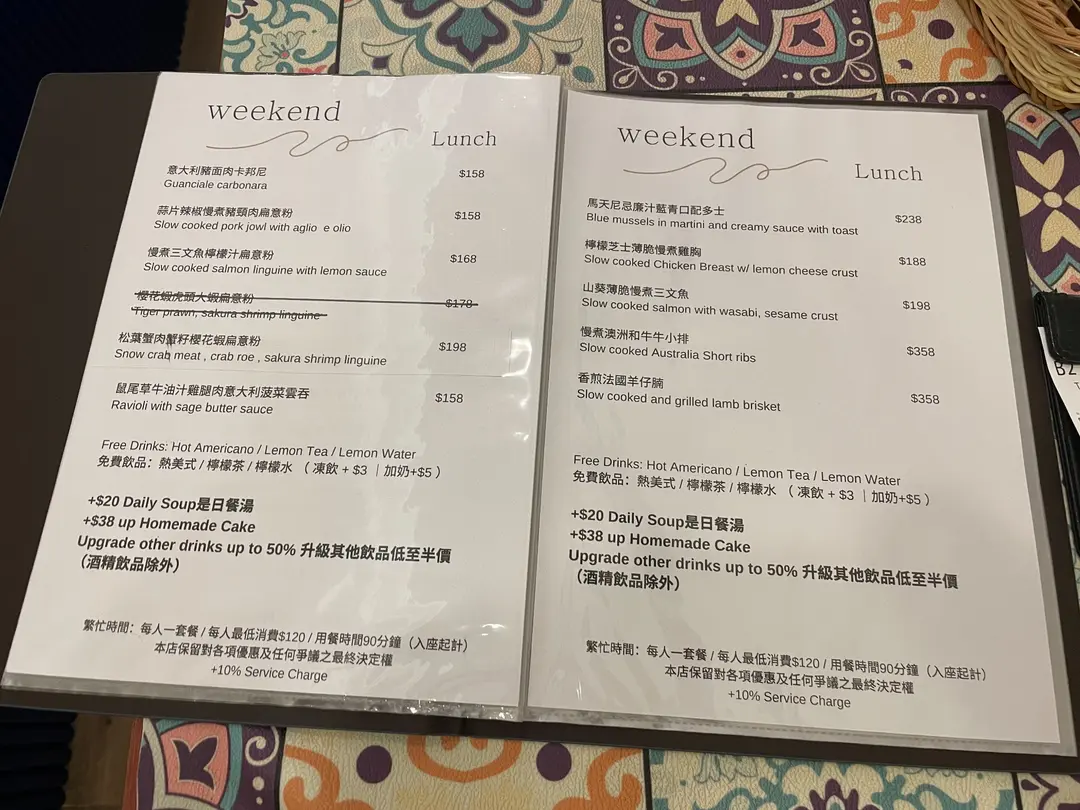 weekend
Lunch
意大利豬面肉卡邦尼 $158
Guanciale carbonara
蒜片辣椒慢煮豬頸肉扁意粉 $158
Slow cooked pork jowl with aglio e olio
慢煮三文魚檸檬汁扁意粉 $168
Slow cooked salmon linguine with lemon sauce
櫻花蝦虎頭大蝦扁意粉 $178
Tiger prawn, sakura shrimp linguine
松葉蟹肉蟹籽櫻花蝦扁意粉 $198
Snow crab meat , crab roe , sakura shrimp linguine
鼠尾草牛油汁雞腿肉意大利菠菜雲吞 $158
Ravioli with sage butter sauce
Free Drinks: Hot Americano / Lemon Tea / Lemon Water
免費飲品：熱美式 / 檸檬茶 / 檸檬水 （ 凍飲 + $3 ｜加奶+$5 ）
+$20 Daily Soup是日餐湯
+$38 up Homemade Cake
Upgrade other drinks up to 50% 升級其他飲品低至半價
（酒精飲品除外）
繁忙時間：每人一套餐 / 每人最低消費$120 / 用餐時間90分鐘（入座起計）
本店保留對各項優惠及任何爭議之最終決定權
+10% Service Charge
weekend
Lunch
馬天尼忌廉汁藍青口配多士 $238
Blue mussels in martini and creamy sauce with toast
檸檬芝士薄脆慢煮雞胸 $188
Slow cooked Chicken Breast w/ lemon cheese crust
山葵薄脆慢煮三文魚 $198
Slow cooked salmon with wasabi, sesame crust
慢煮澳洲和牛牛小排 $358
Slow cooked Australia Short ribs
香煎法國羊仔腩 $358
Slow cooked and grilled lamb brisket
Free Drinks: Hot Americano / Lemon Tea / Lemon Water
免費飲品：熱美式 / 檸檬茶 / 檸檬水 （ 凍飲 + $3 ｜加奶+$5 ）
+$20 Daily Soup是日餐湯
+$38 up Homemade Cake
Upgrade other drinks up to 50% 升級其他飲品低至半價
（酒精飲品除外）
繁忙時間：每人一套餐 / 每人最低消費$120 / 用餐時間90分鐘（入座起計）
本店保留對各項優惠及任何爭議之最終決定權
+10% Service Charge